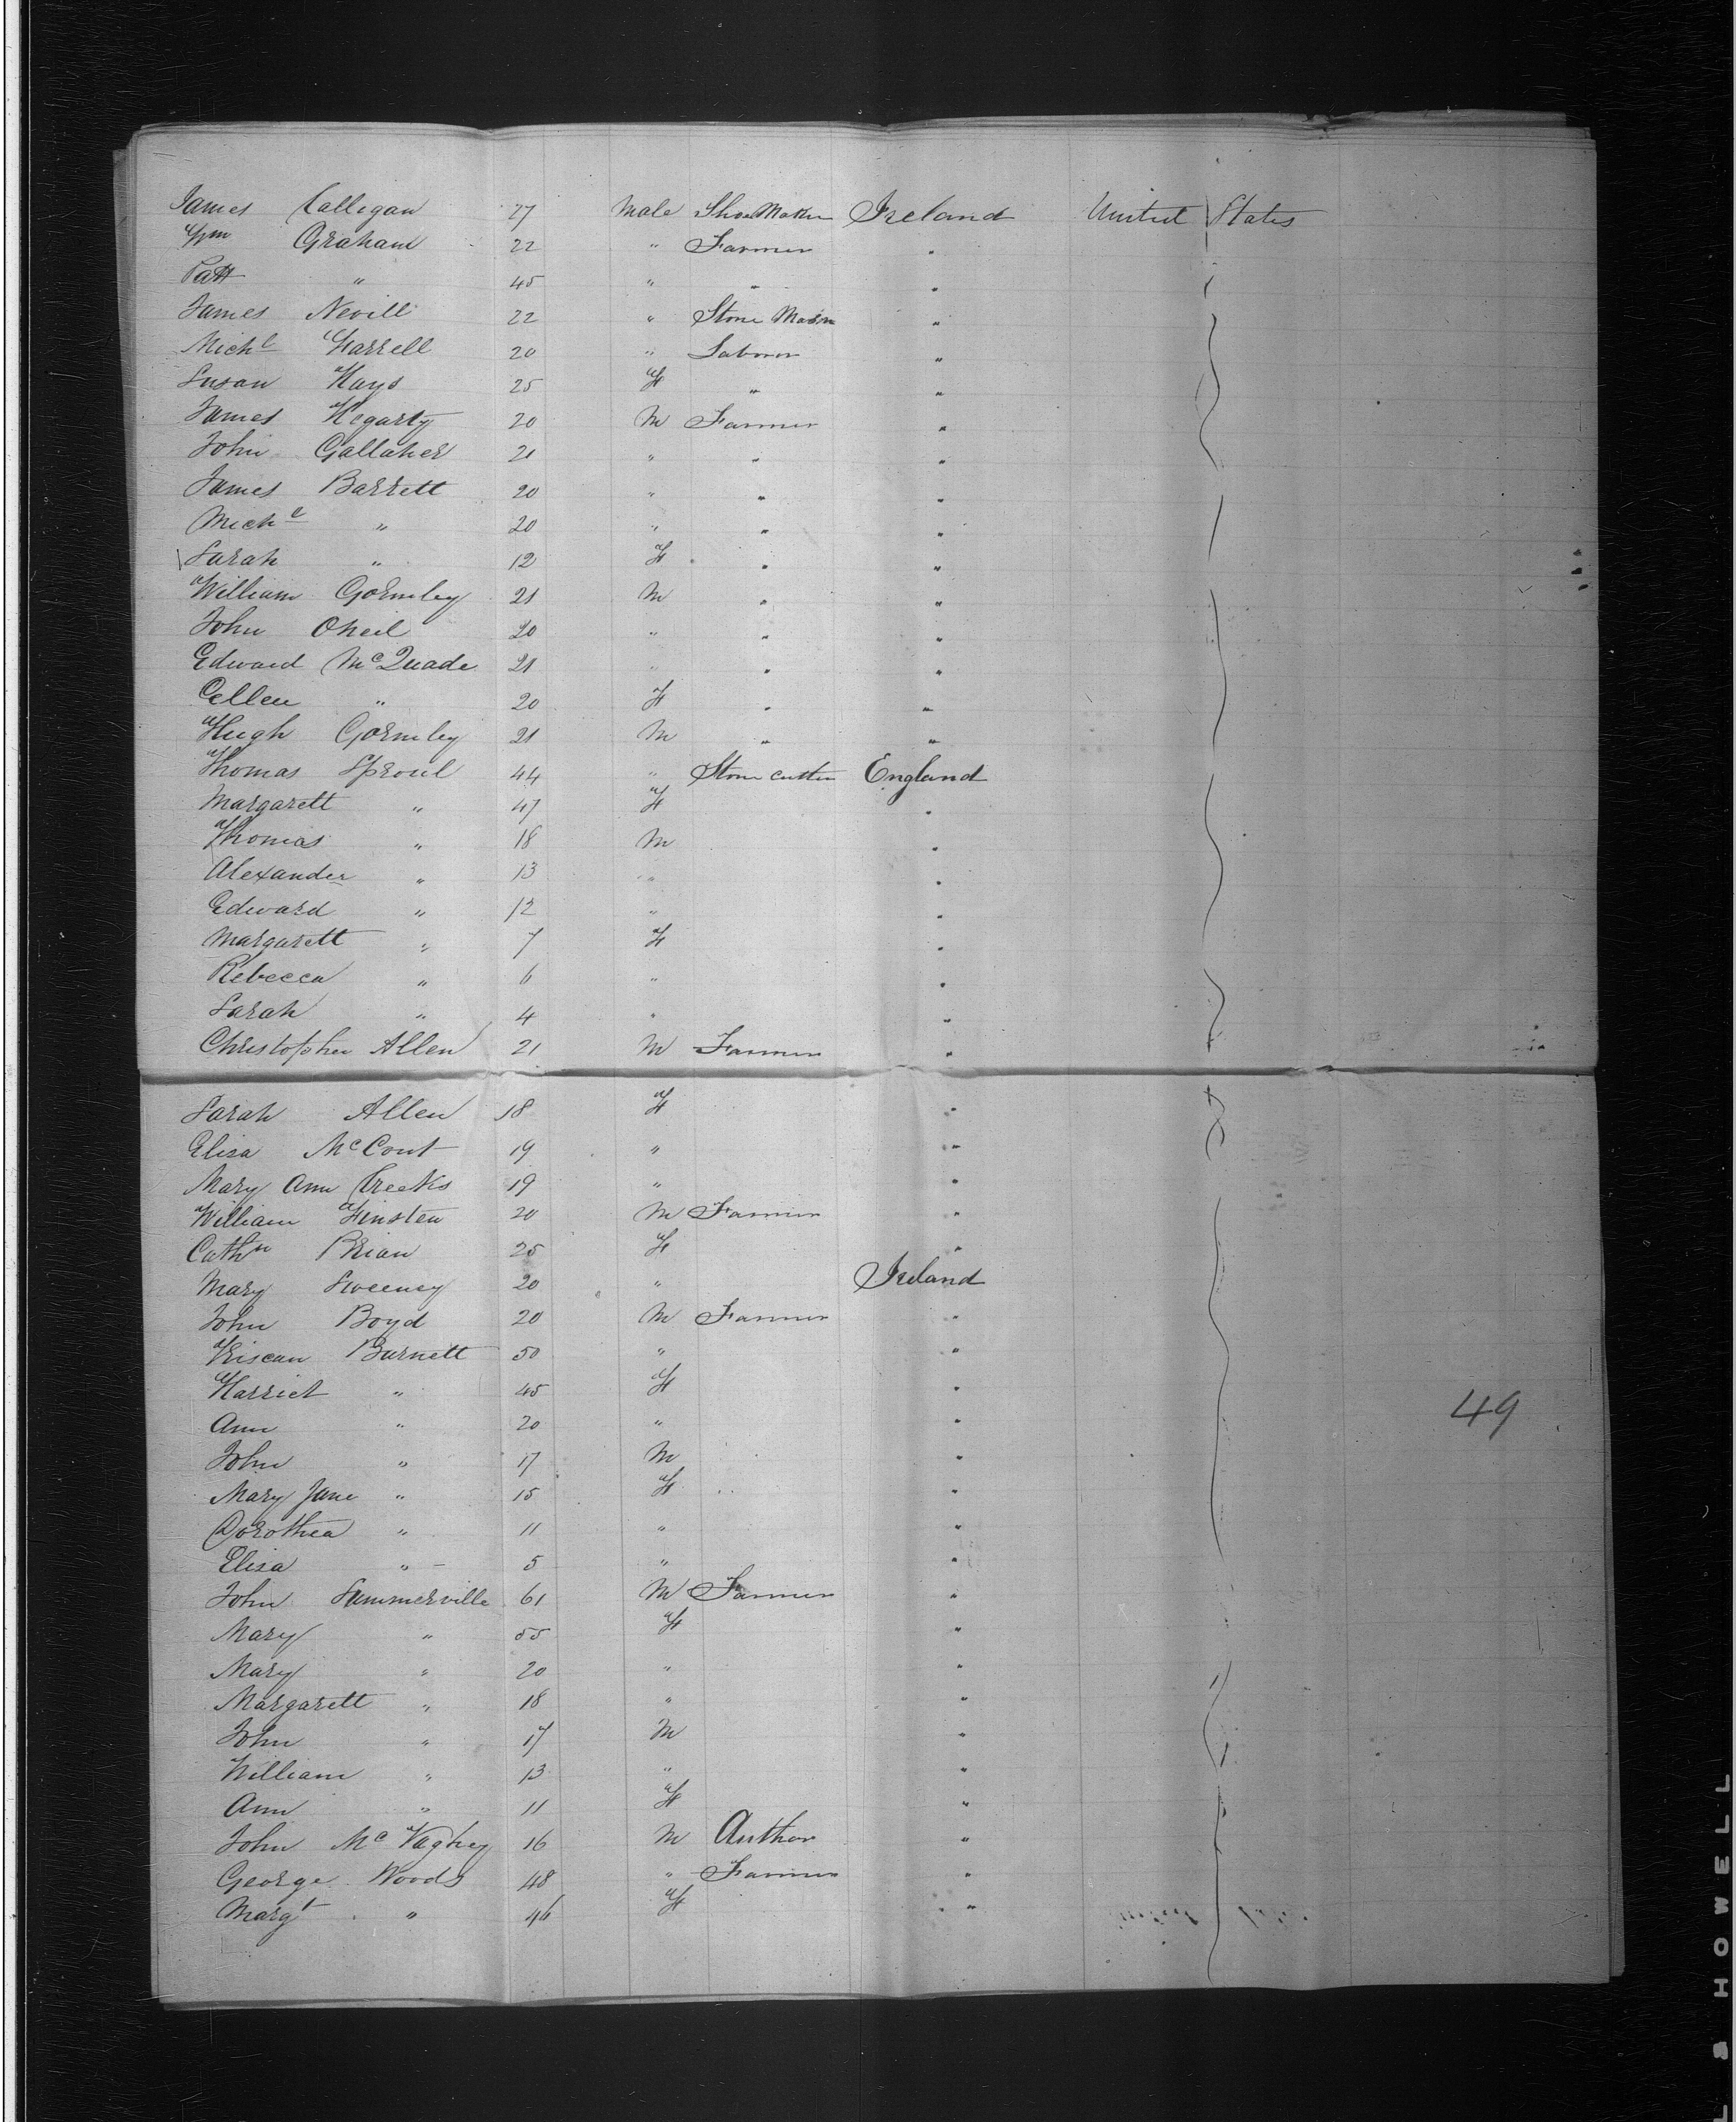 James Calligan 27 Male Shoe Maker Ireland United States
Wm Graham 22 " Farmer "
Patt " 45 " " "
James Nevill 22 " Stone Mason "
Michl Farrell 20 " Laborer "
Susan Hays 25 F " "
James Hegarty 20 M Farmer "
John Gallaher 21 " " "
James Barrett 20 " " "
Michl " 20 " " "
Sarah " 12 F " "
William Gormley 21 M " "
John Oneil 20 " " "
Edward McQuade 21 " " "
Ellen " 20 F " "
Hugh Gormley 21 M " "
Thomas Sproul 44 " Stone cutter England
Margarett " 47 F "
Thomas " 18 M "
Alexander " 13 " "
Edward " 12 " "
Margarett " 7 F "
Rebecca " 6 " "
Sarah " 4 " "
Christopher Allen 21 M Farmer "
Sarah Allen 18 F "
Eliza McCourt 19 " "
Mary Ann Creeks 19 " "
William Finsten 20 M Farmer "
Cathn Brian 25 F "
Mary Sweeney 20 " Ireland
John Boyd 20 M Farmer "
Burnett 50 " "
Harriet " 45 F "
Ann " 20 " "
John " 17 M "
Mary Jane " 15 F "
Dorothea " 11 " "
Eliza " 5 " "
John Summerville 61 M Farmer "
Mary " 55 F "
Mary " 20 " "
Margarett " 18 " "
John " 17 M "
William " 13 " "
Ann " 11 F "
John McVaghey 16 M Author "
George Woods 48 " Farmer "
Margt " 46 F "
49